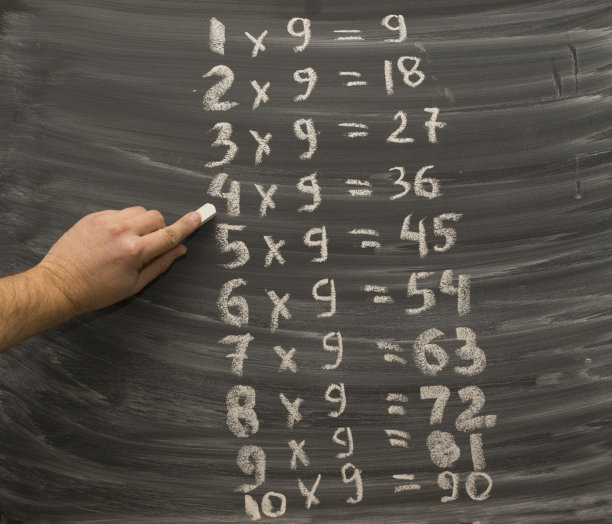 1 x 9 = 9
2 x 9 = 18
3 x 9 = 27
4 x 9 = 36
5 x 9 = 45
6 x 9 = 54
7 x 9 = 63
8 x 9 = 72
9 x 9 = 81
10 x 9 = 90